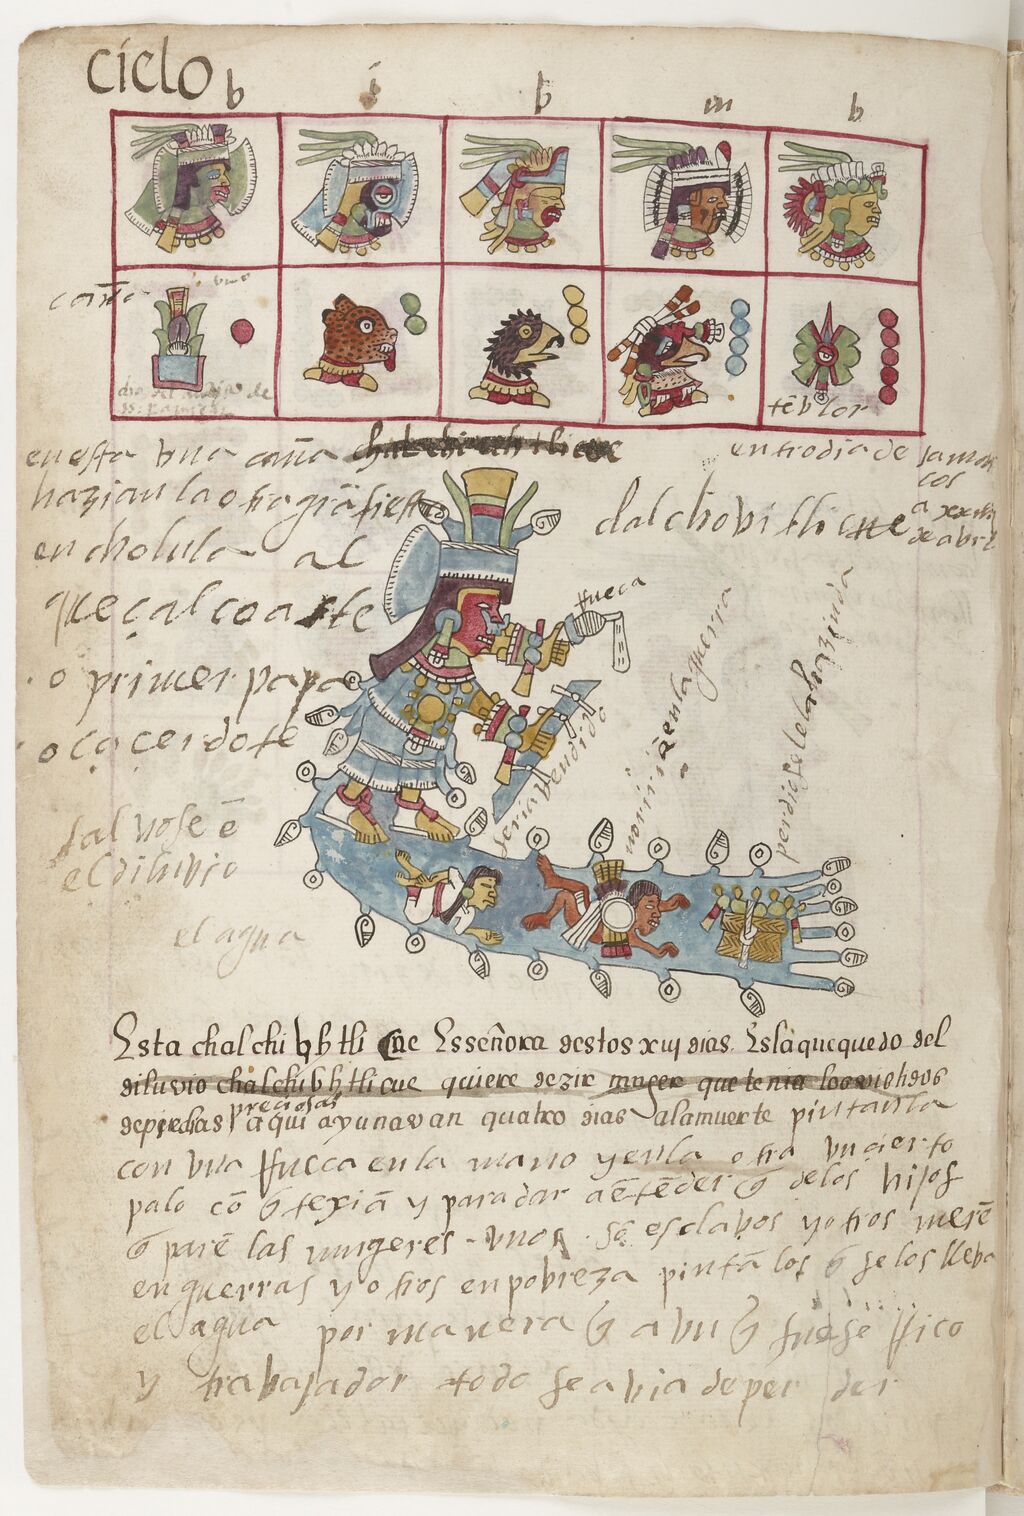 ciclo
b
i
b
m
b
caña
uno
temblor
en esta vna caña chalchiuhtlicue
hazian la otra grã fiesta
en cholula al
queçalcoatle
o primer papa
o çaçerdote
entro dia de
a xx
de abril
chalchovitlicue
rueca
seria vendido
moriria en la guerra
perdiose la hazienda
salvose ẽ
el diluvio
el agua
Esta chalchiuhtlicue Es señora destos xiij dias. Es la que quedo del
diluvio chalchiuhtlicue quiere dezir muger que tenia los vestidos
de piedras preciosas aqui ayunavan quatro dias a la muerte pintanla
con vna rrueca en la mano y en la otra vn çierto
palo cõ q̃ texiã y para dar a ẽtẽder q̃ de los hijos
q̃ parẽ las mugeres - vnos sõ esclabos y otros muerẽ
en guerras y otros en pobreza pintã los q̃ se los lleba
el agua por manera q̃ avn q̃ fuese rrico
y trabajador todo se avia de perder